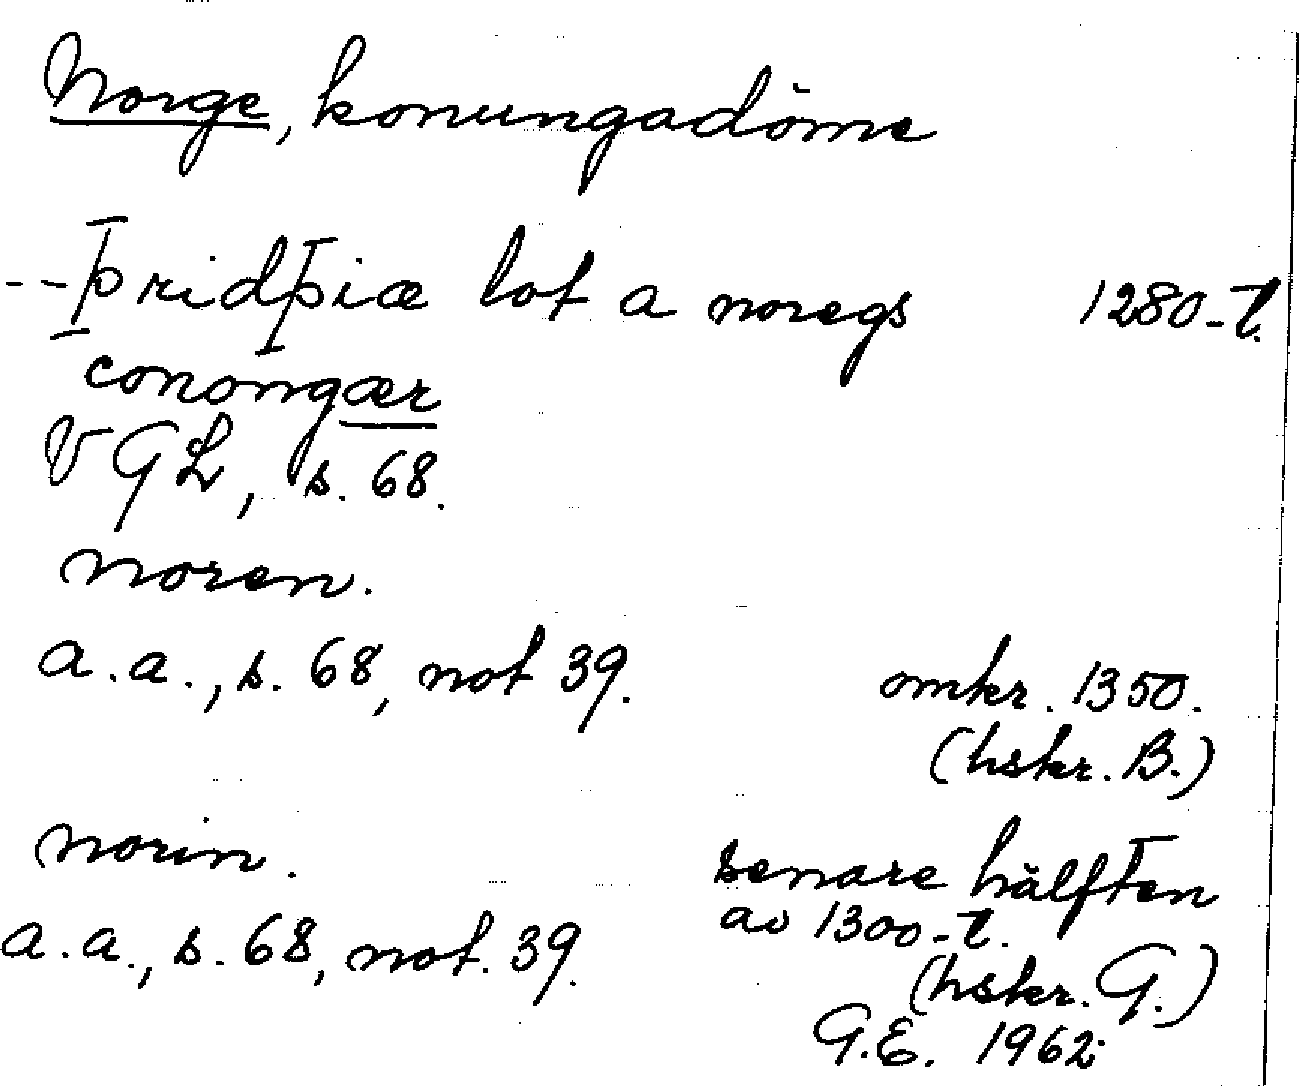 Norge, konungadöme
--þridþiæ lot a noregs 1280-t.
conongær
VGL, s. 68.
noren.
a.a., s. 68, not 39. omkr. 1350.
(hskr. B.)
norin. senare hälften
av 1300-t.
a.a., s. 68, not. 39. (hskr. G.)
G.E. 1962